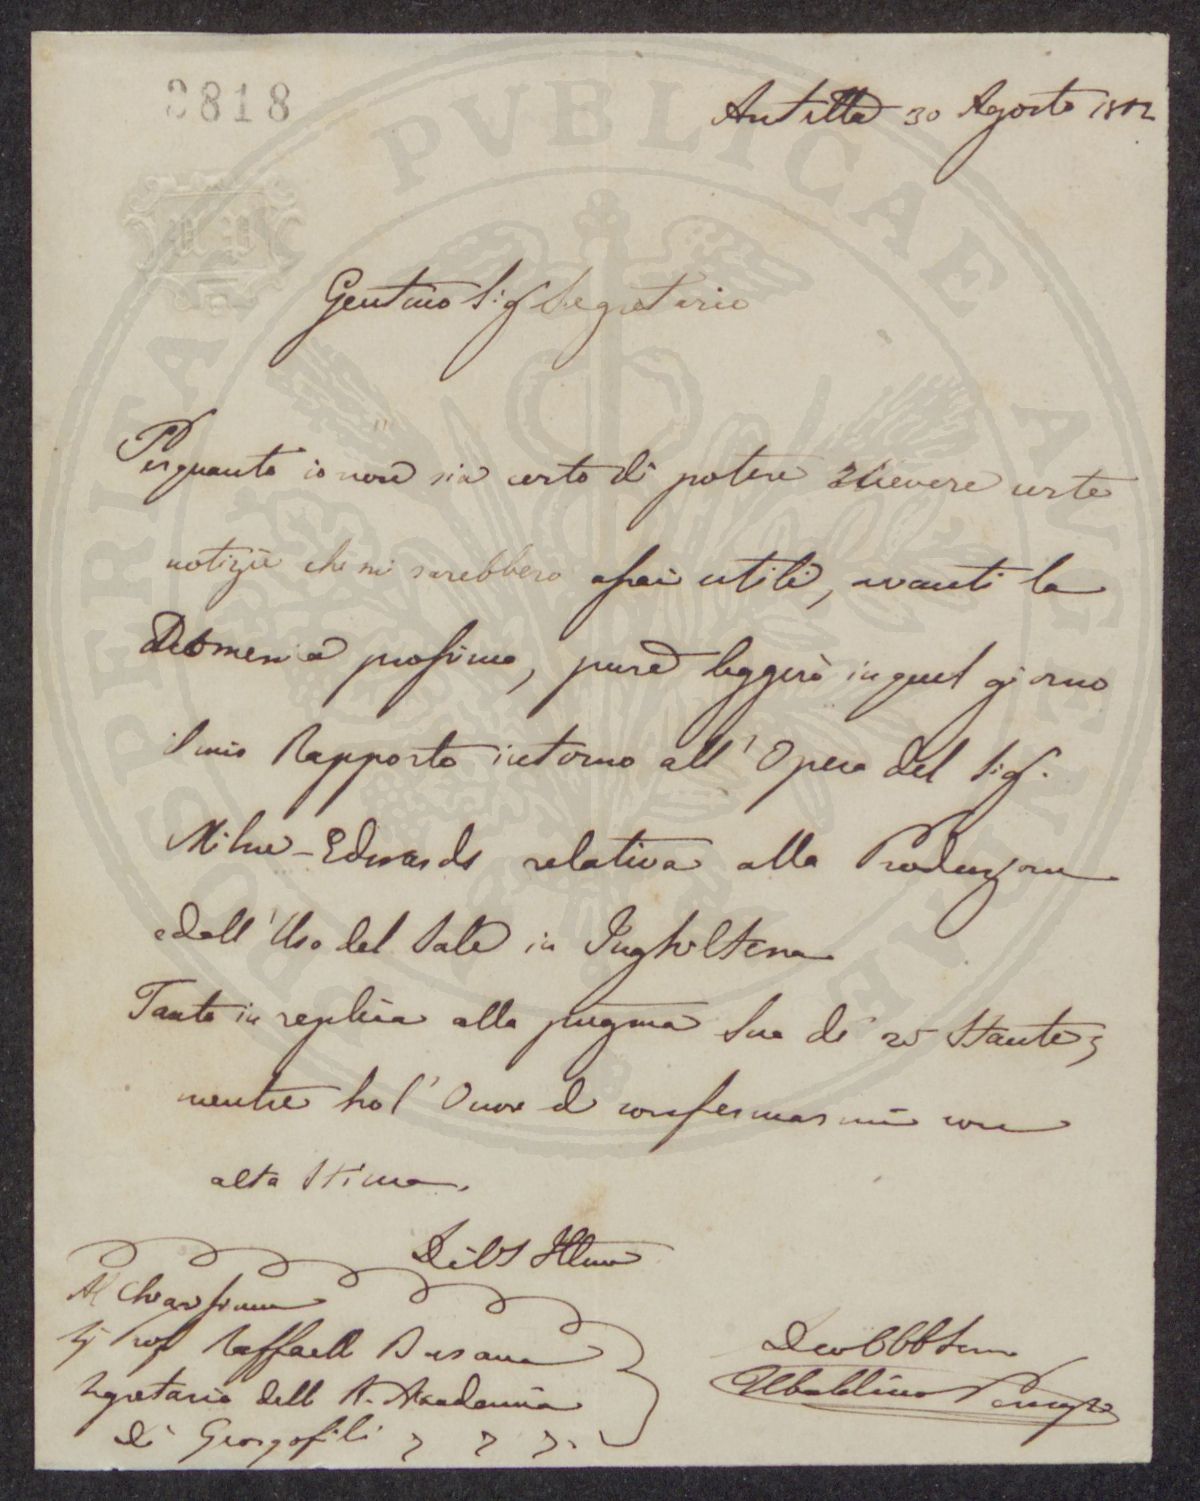 3818
Antella 30 Agosto 18
Gentmo Sigr Segretario
Perquanto io non sia certo di potere ricevere certe
notizie che mi sarebbero assai utili, avanti la
Domenica prossima, pure leggerò in quel giorno
il mio Rapporto intorno all'Opera del Sigr.
Milne-Edwards relativa alla Produzione
e dell'Uso del Sale in Inghilterra
Tanto in replica alla pregma Sua de' 25 Stante,
mentre ho l'Onore di confermarmi con
alta Stima.
Di VS Illma
Al Chiarissimo
Sig Prof Raffaell Busacca
Segretario dell R. Accademia
Dei Georgofili
Dev Obb Serv
Ubaldino Peruzzi
PVBLICAE
PROSPERITATI
AVGENDAE